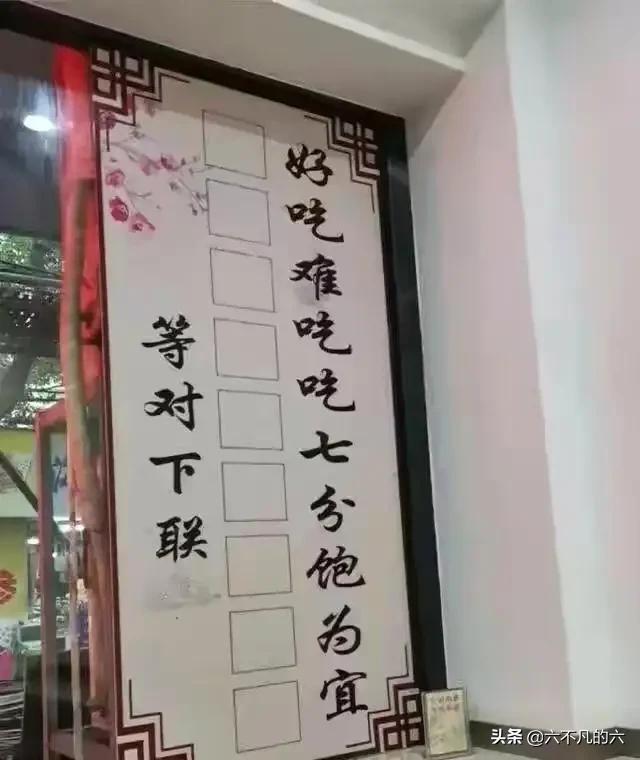 好吃难吃吃七分饱为宜
等对下联
头条 @六不凡的六